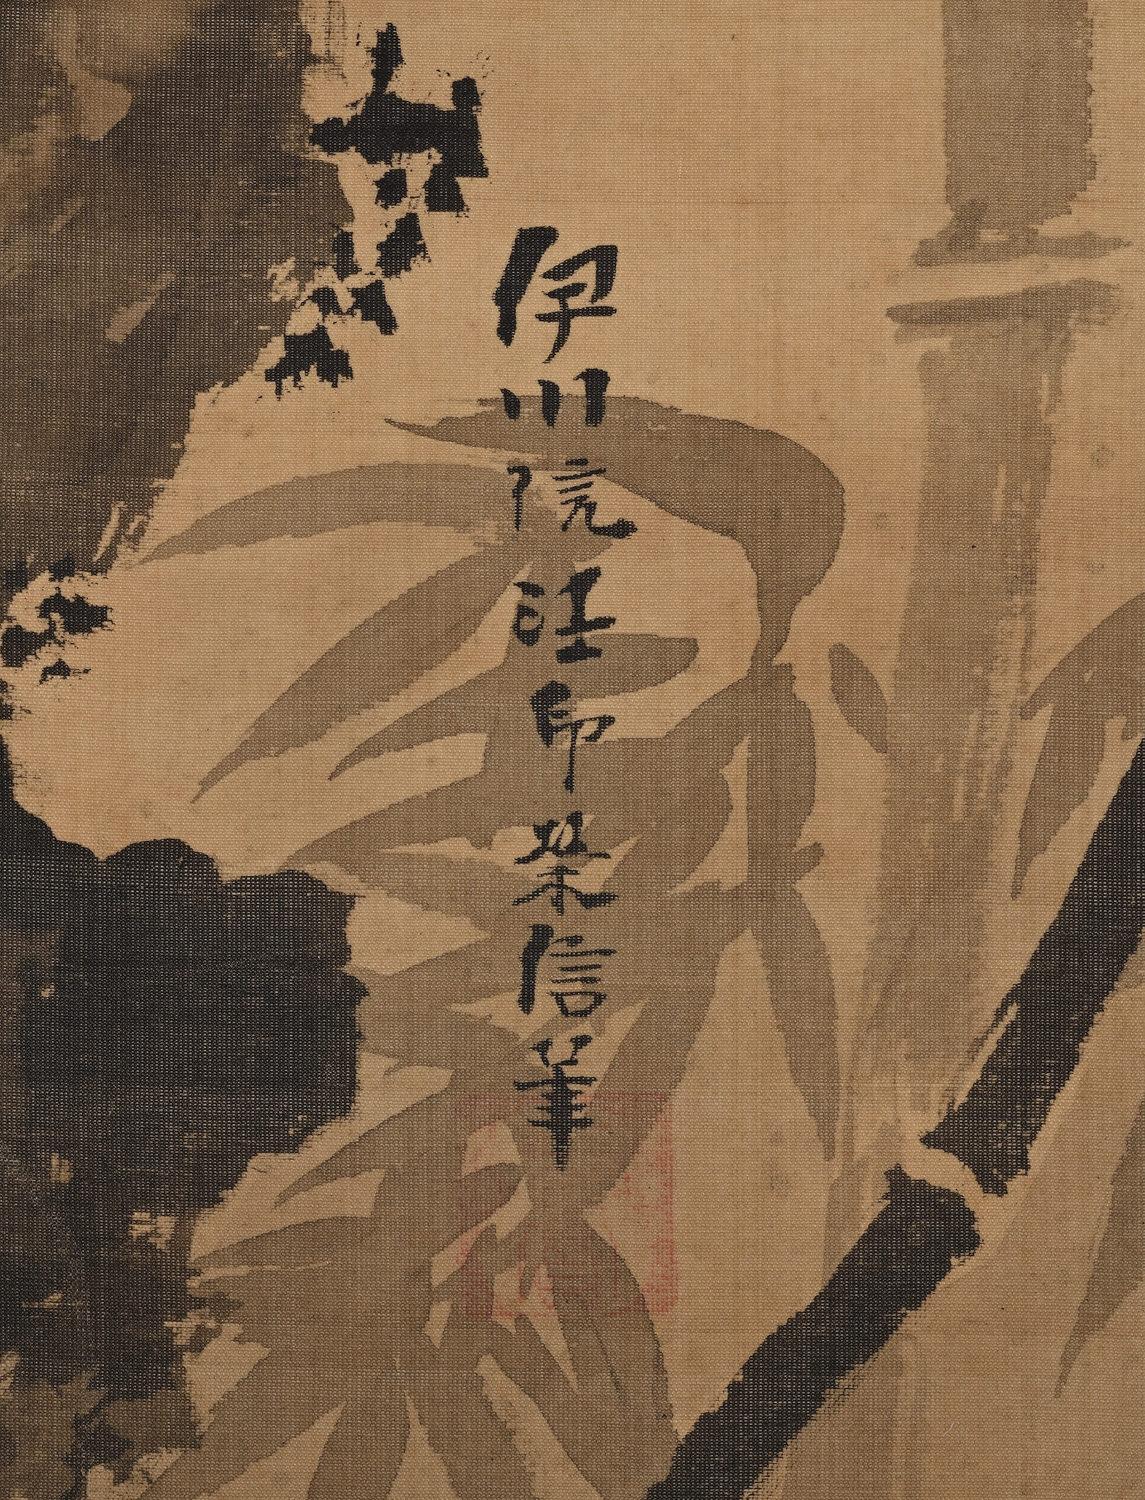 伊川院法印栄信筆